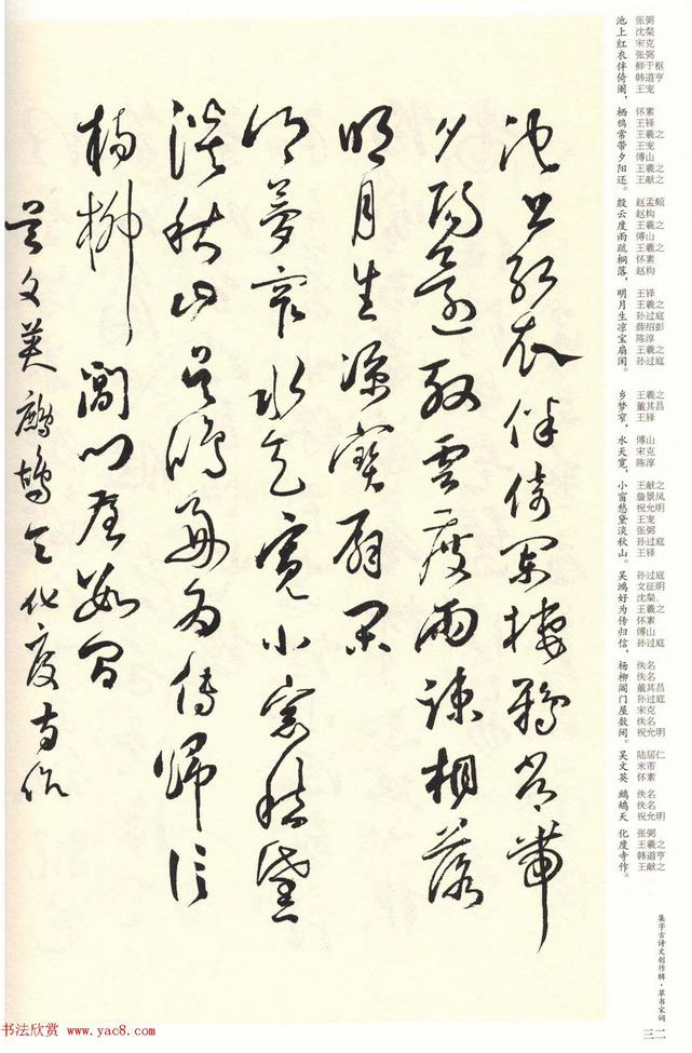 池 张弼
上 沈粲
红 宋克
衣 张弼
伴 鲜于枢
倚 韩道亨
阑， 王宠
栖 怀素
鸦 王铎
常 王羲之
带 王宠
夕 傅山
阳 王羲之
还。 王献之
殷 赵孟頫
云 赵构
度 王羲之
雨 傅山
疏 王羲之
桐 怀素
落， 赵构
明 王铎
月 王羲之
生 孙过庭
凉 薛绍彭
宝 陈淳
扇 王羲之
闲。 孙过庭
乡 王羲之
梦 董其昌
窄， 王铎
水 傅山
天 宋克
宽， 陈淳
小 王献之
窗 詹景凤
愁 祝允明
黛 王宠
淡 张弼
秋 孙过庭
山。 王铎
吴 孙过庭
鸿 文征明
好 沈粲
为 王羲之
传 怀素
归 傅山
信， 孙过庭
杨 佚名
柳 佚名
阊 董其昌
门 孙过庭
屋 宋克
数 佚名
间。 祝允明
吴 陆居仁
文 米芾
英 怀素
鹧 佚名
鸪 佚名
天 祝允明
化 张弼
度 王羲之
寺 韩道亨
作。 王献之
集字古诗文创作辑·草书宋词
三二
池上紅衣伴倚闌棲鴉常帶
夕陽還殷雲度雨疎桐落
明月生涼寶扇閑
鄉夢窄水天寬小窗愁黛
淡秋山吳鴻好為傳歸信
楊柳閶門屋數間
吳文英鷓鴣天化度寺作
书法欣赏 www.yac8.com